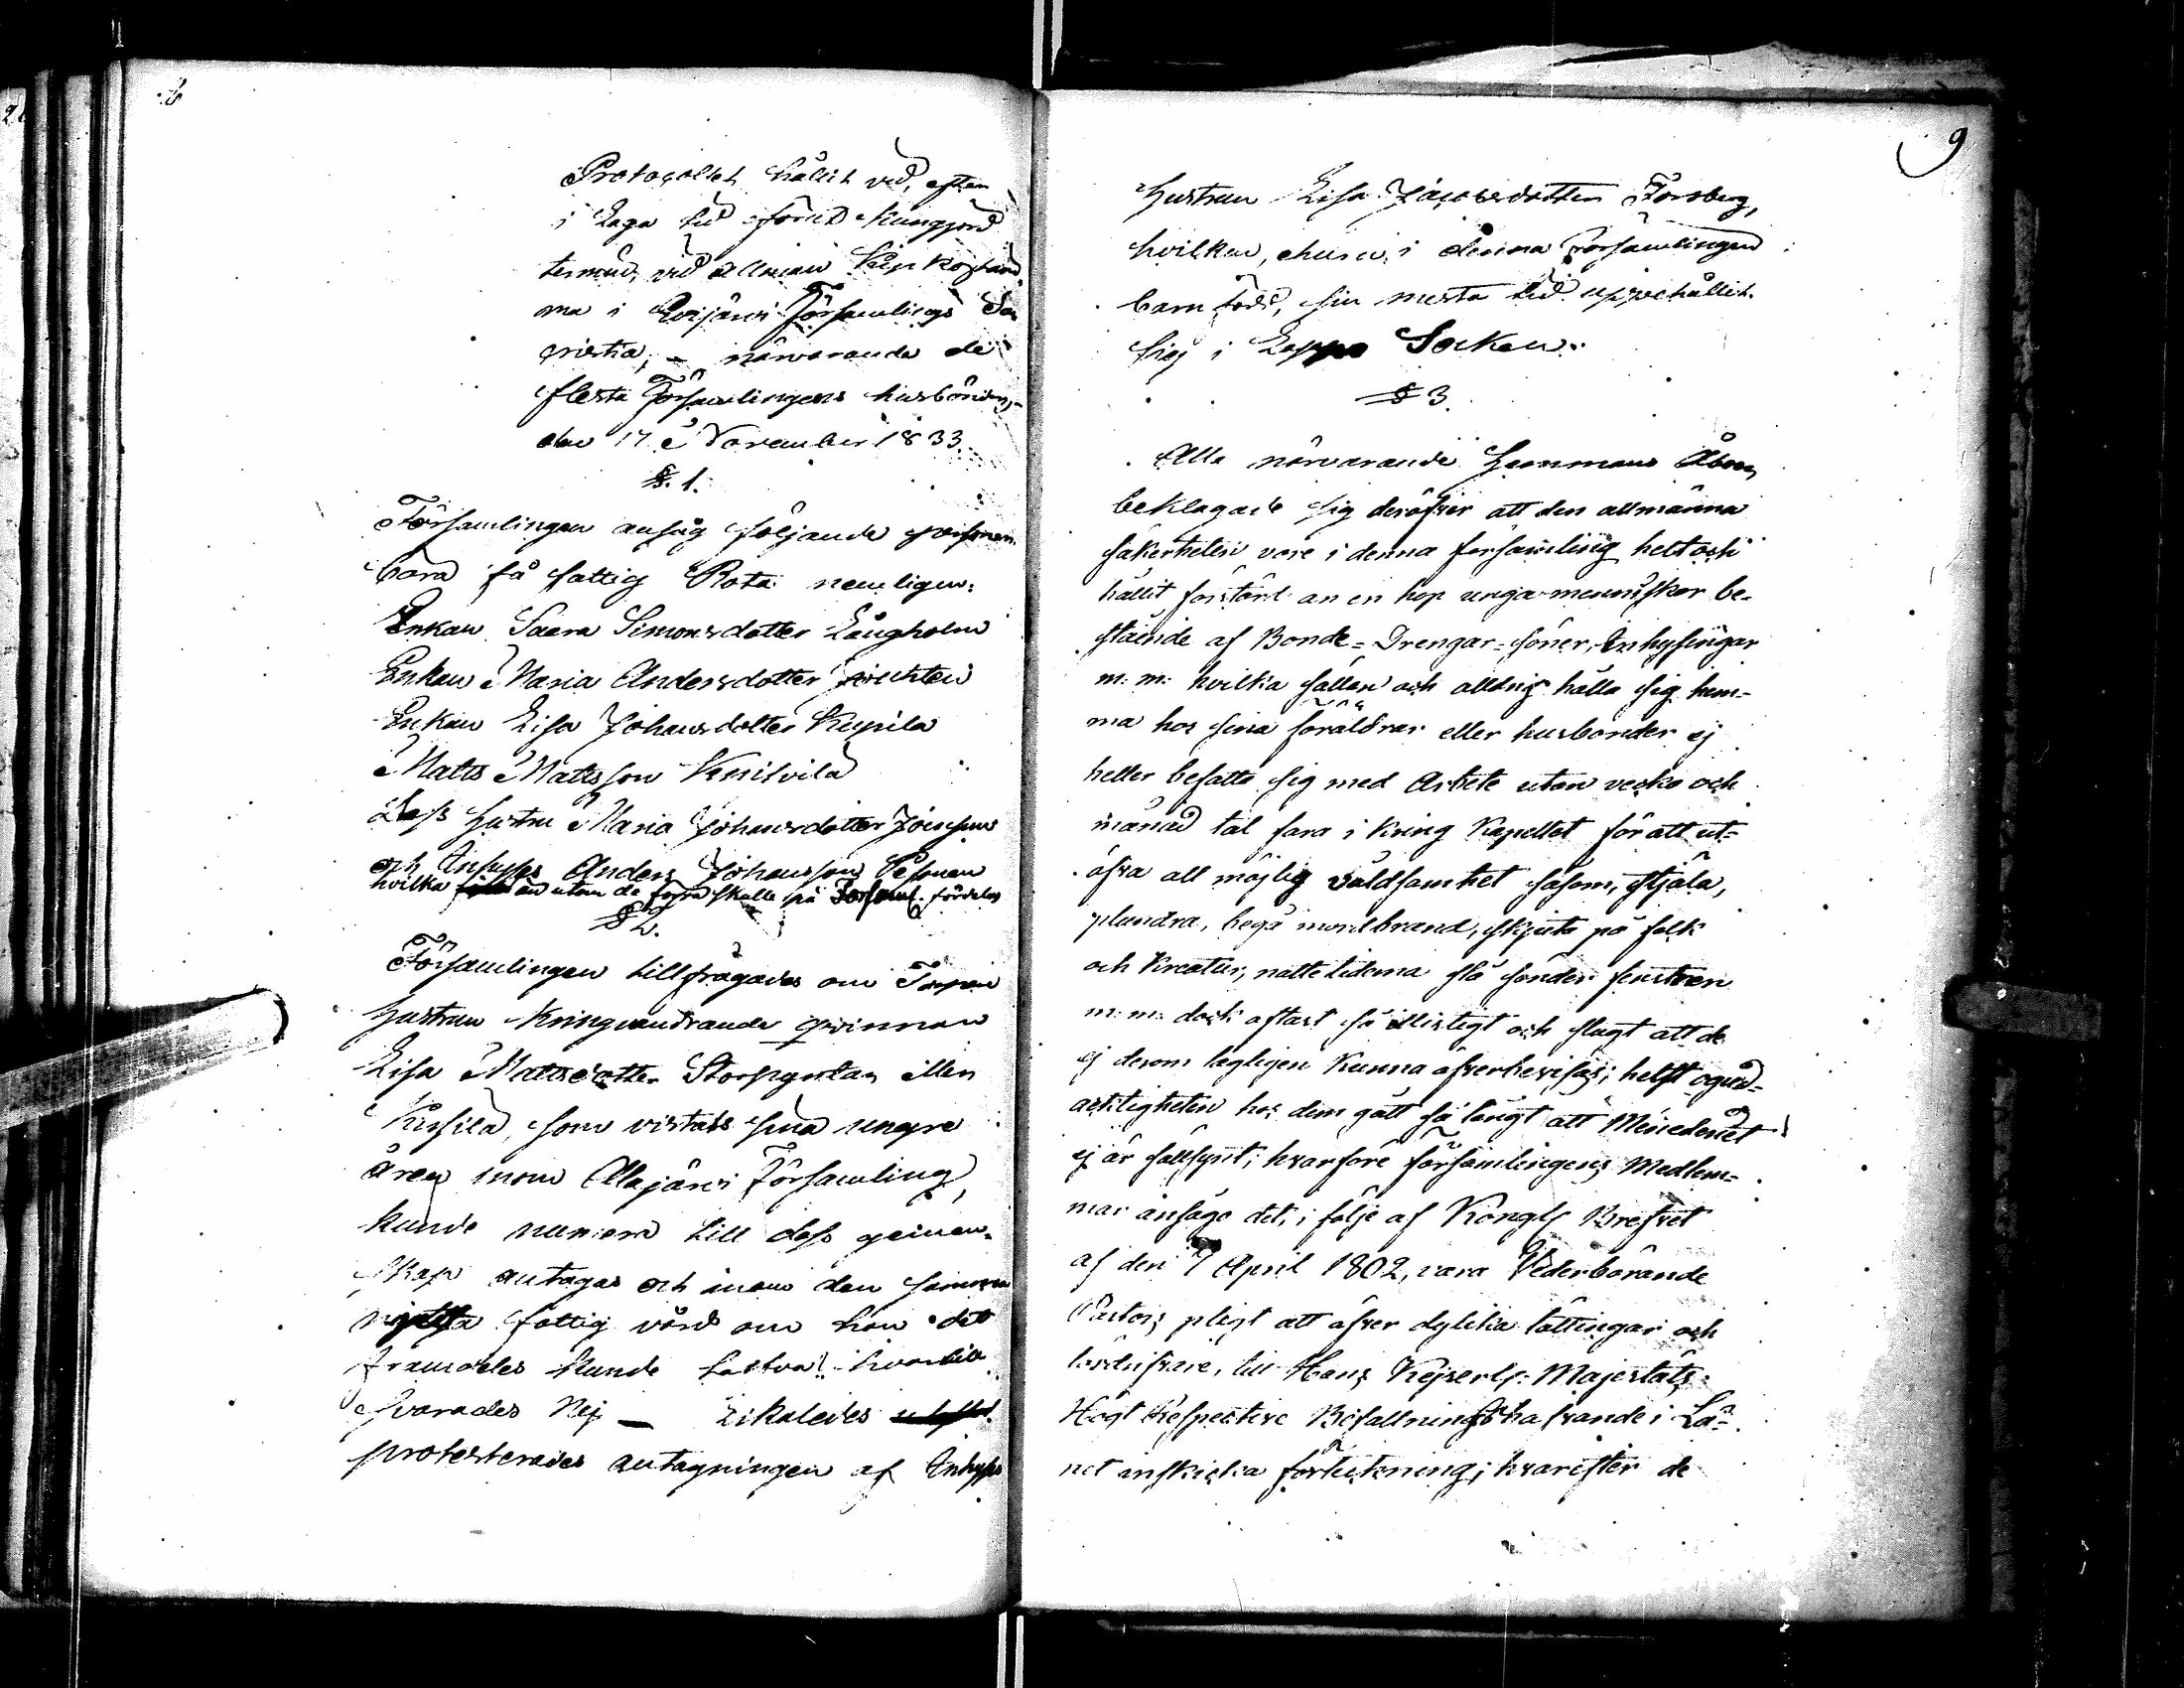 Protocollet hållit vid, efter
i Laga tid förut kungjord
termin, vid allmän Kyrkostäm
ma i Evijärvi Församlings Sa
cristia, - närvarande de
flesta Församlingens husbönder,
den 17 November 1833.
§. 1.
Församlingen ansåg följande personer
böra få fattig Rota nemligen:
Enkan Saara Simonsdotter Långholm
Enkan Maria Andersdotter
Enkan Lisa Johansdotter Kupila
Matts Mattsson
Dess hustru Maria Johansdotter
och Inhyses Anders Johansson Pesonen
hvilka utom de förra skulle på Församl. fördelas
§ 2.
Församlingen tillfrågades om
hustrun kringvandrande qvinnan
Lisa Mattsdotter eller
Kusila, som vistats sina yngre
åren inom Alajärvi Församling,
kunde numera till dess gemen-
skap antagas och inom den samma
njuta fattig vård om hon det
framdeles kunde behöfva! hvartill
svarades Nej — Likaledes
protesterades antagningen af Inhyses
9
Hustrun Lisa Jacobsdotter Forsberg,
hvilken, ehuru i denna Församlingen
barn född, sin mesta tid uppehållit
sig i Lappo Socken.
§ 3.
Alla närvarande Hemmans Åboer
beklagade sig deröfver att den allmänna
säkerheten vore i denna församling helt och
hållit förstörd an en hop unga menniskor be-
stående af Bonde= Drengar= söner, Inhysingar
m: m: hvilka sällan och alldrig hålla sig hem-
ma hos sina föräldrar eller husbönder ej
heller befatta sig med Arbete utan vecko och
månad tal fara i kring Kapellet för att ut-
öfva all möjlig våldsamhet såsom, stjäla,
plundra, begå mordbrand, skjuta på folk
och Kreatur, nattetiderna slå sönder fenstren
m: m: dock oftast så illistigt och slugt att de
ej derom lagligen kunna öfverbevisas; helst ogud-
aktigheten hos dem gått så långt att Meneden
ej är sällsynt; hvarföre församlingens Medlem-
mar ansågo det, i följe af Kongl. Brefvet
af den 7 April 1802, vara Vederbörande
Pastors pligt att öfver dylika lättingar och
lösdrifvare, till Hans Kejserl. Majestäts
Högt Respective Befallningshafvande i Lä-
net inskicka förteckning; hvarefter de